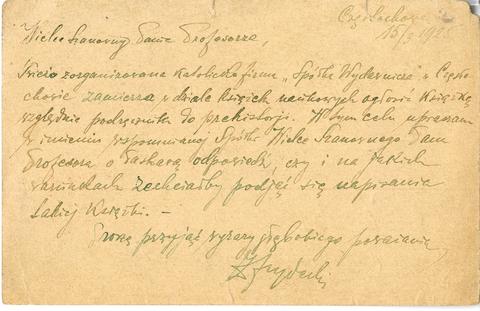 Częstochowa
15/2 192
Wielce Szanowny Panie Profesorze,
Świeżo zorganizowana katolicka firma „Spółka Wydawnicza" w Często-
chowie zamierza w dziale książek naukowych ogłosić książkę
względnie podręcznik do prehistorji. W tym celu upraszam
w imieniu wspomnianej Spółki Wielce Szanownego Pana
Profesora o łaskawą odpowiedź, czy i na jakich
warunkach zechciałby podjąć się napisania
takiej książki. —
Proszę przyjąć wyrazy głębokiego poważania